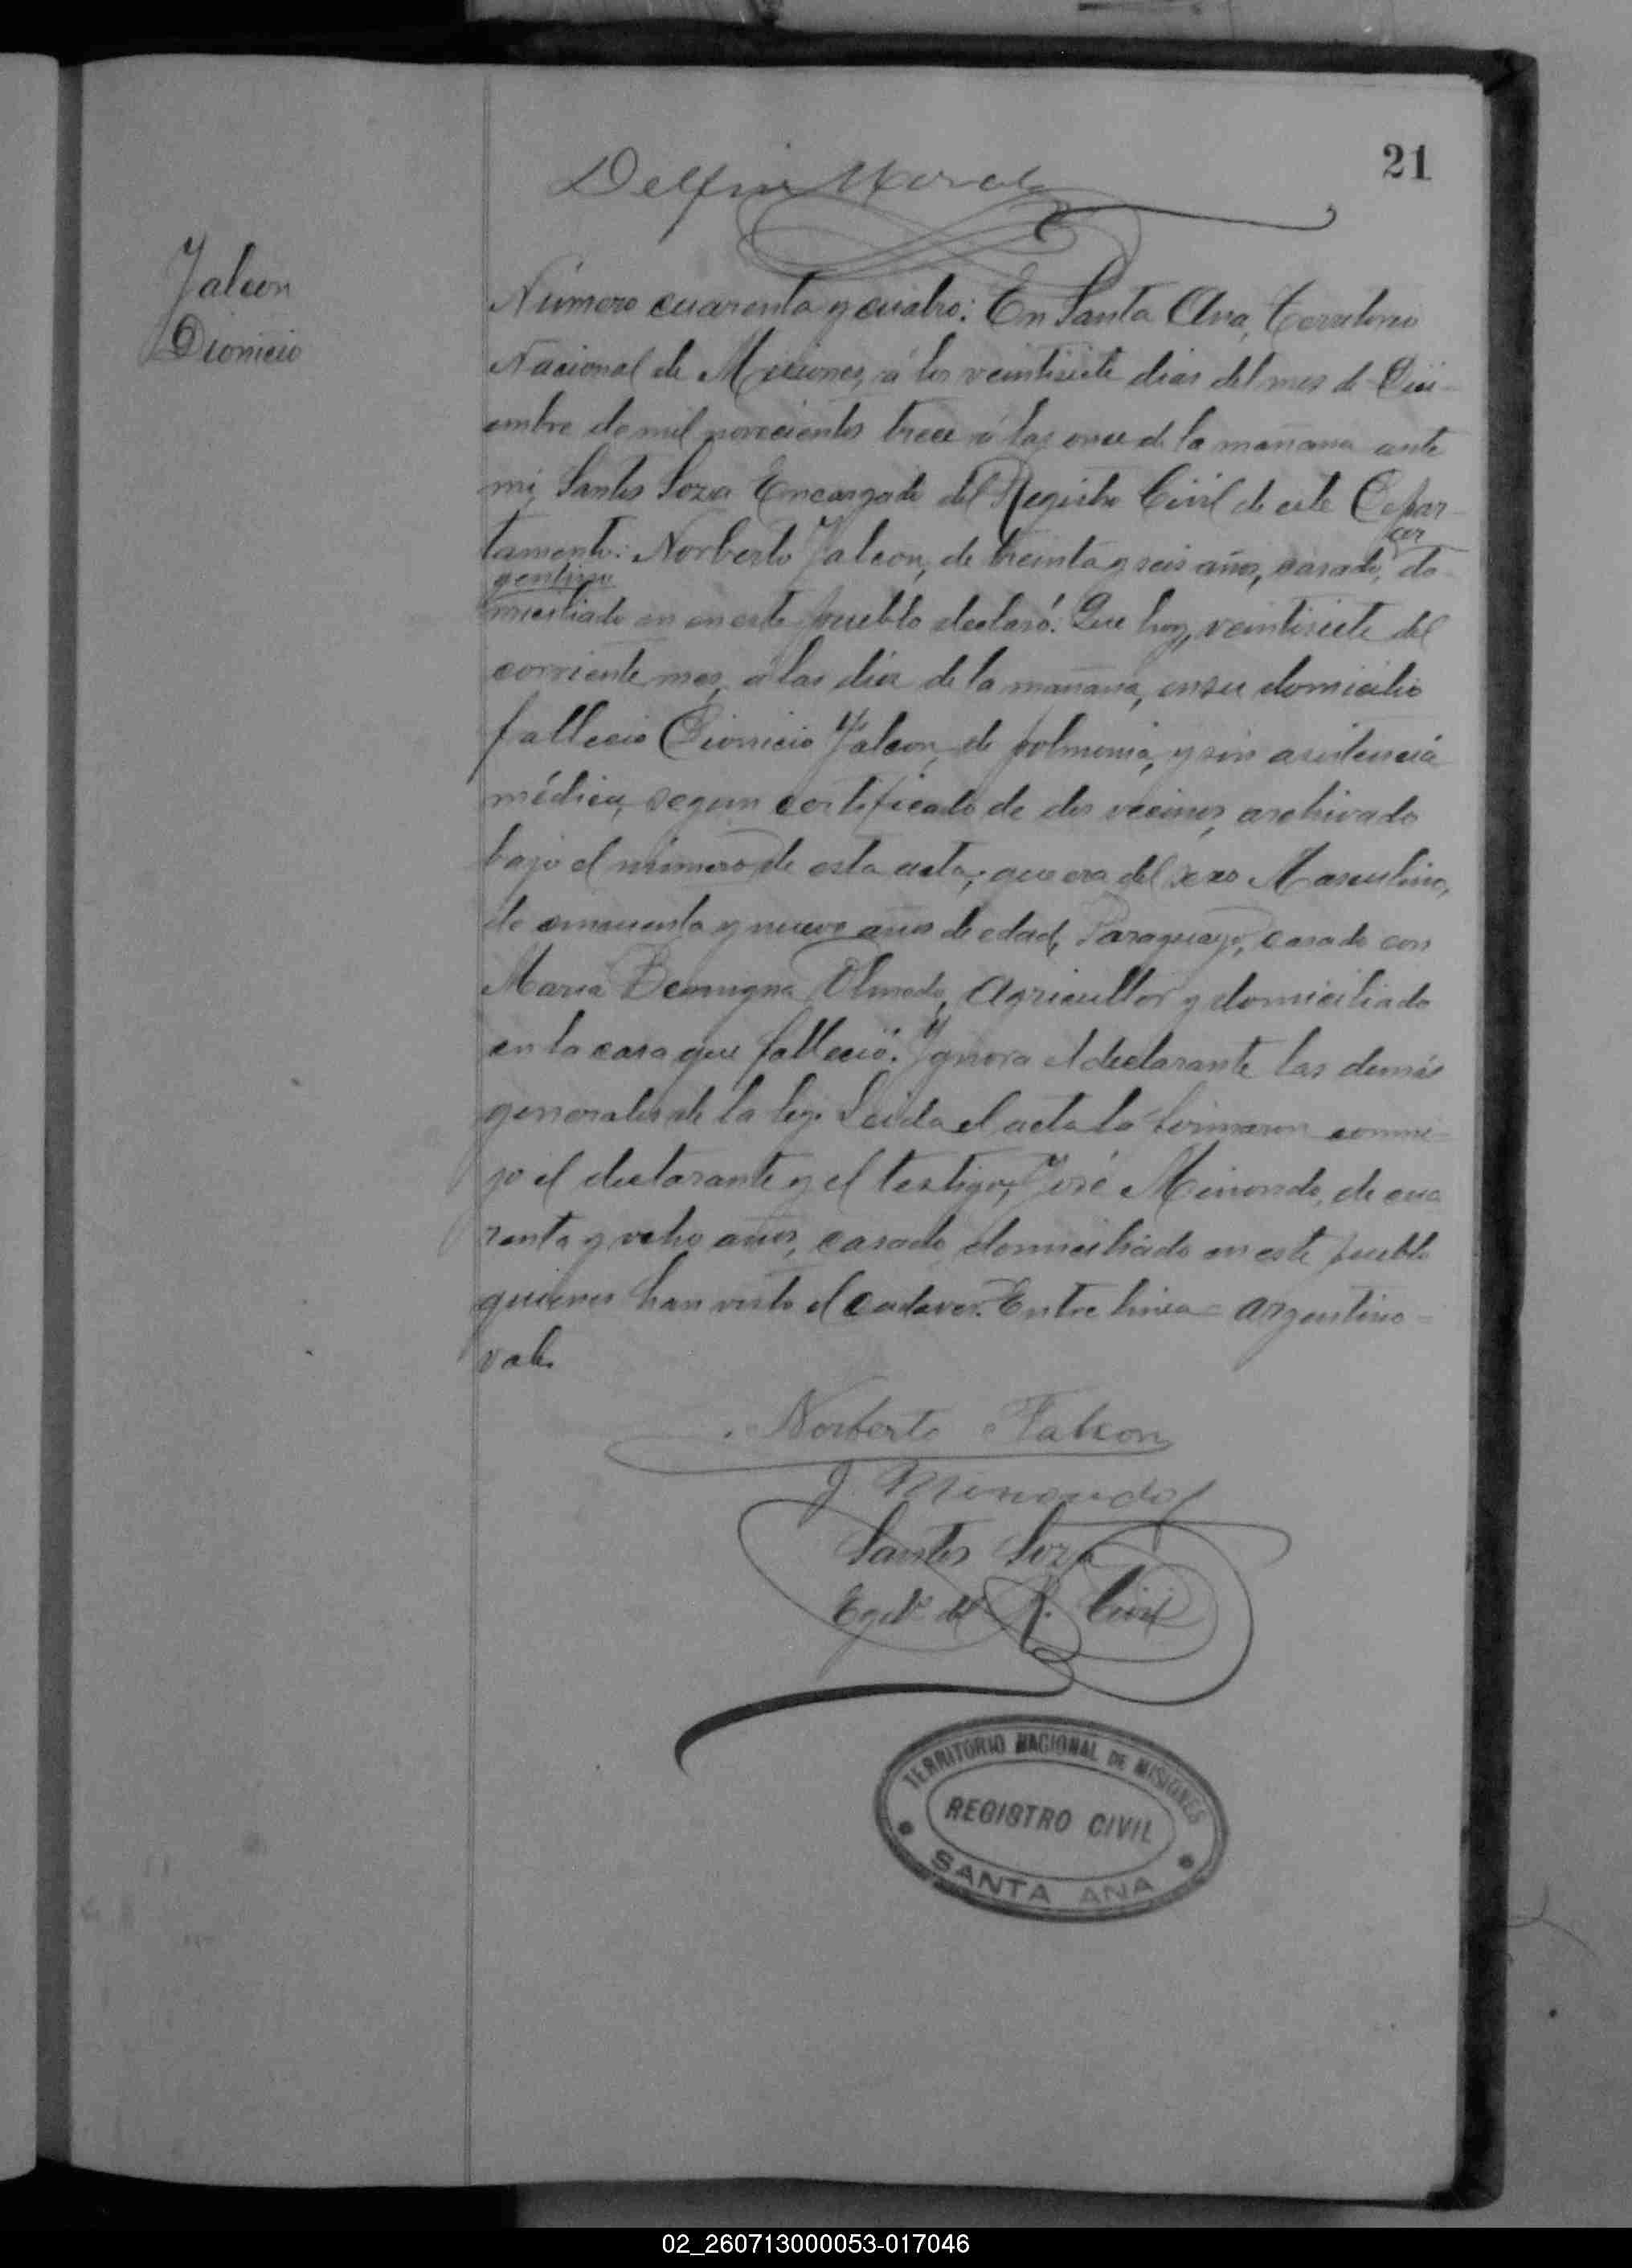 21
Delfin Moral
Falcon
Dionicio
Número cuarenta y cuatro: En Santa Ana, Territorio
Nacional de Misiones, á los veintisiete dias del mes de Dici-
embre de mil novecientos trece á las once de la mañana ante
mi, Santos Soza Encargado del Registro Civil de este Depar-
tamento: Norberto Falcon, de treinta y seis años, casado, ar
gentino do-
miciliado en en este pueblo declaró: Que hoy, veintisiete del
corriente mes, á las diez de la mañana, en su domicilio
fallecio Dionicio Falcon, de polmonia, y sin asistencia
médica, segun certificado de dos vecinos, archivado
bajo el número de esta acta; que era del sexo Masculino,
de cincuenta y nueve años de edad, Paraguayo, casado con
Maria Benigna Olmedo, Agricultor y domiciliado
en la casa que falleció. Ignora el declarante las demás
generales de la ley. Leida el acta la firmaron conmi-
go el declarante y el testigo, José Minondo, de cua
renta y ocho años, casado, domiciliado en este pueblo
quienes han visto el cadaver. Entre linea = argentino =
vale.
Norberto Falcon
J. Minondo
Santos Soza
Egdo. del R. Civil
TERRITORIO NACIONAL DE MISIONES
REGISTRO CIVIL
SANTA ANA
02_260713000053-017046